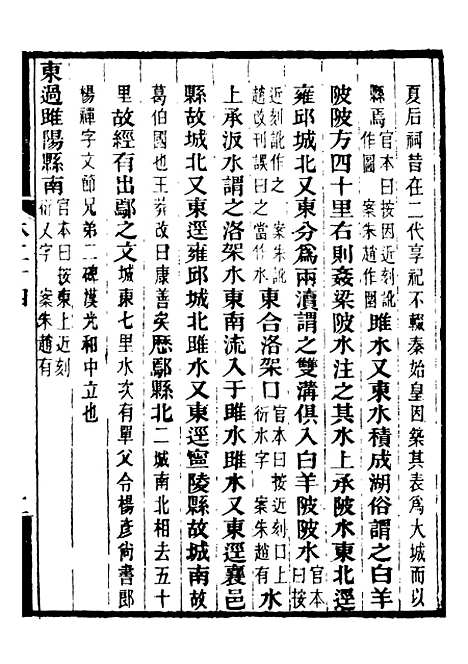 夏后祠昔在二代享祀不輟秦始皇因築其表爲大城而以
縣焉官本曰按近刻訛作圖　案朱趙作圈睢水又東水積成湖俗謂之白羊
陂陂方四十里右則姦梁陂水注之其水上承陂水東北逕
雍邱城北又東分爲兩瀆謂之雙溝俱入白羊陂陂水官本曰按
近刻訛作之　案朱訛趙改刊誤曰之當作水東合洛架口官本曰按近刻口上衍水字　案朱趙有水
上承汳水謂之洛架水東南流入于睢水睢水又東逕襄邑
縣故城北又東逕雍邱城北睢水又東逕寧陵縣故城南故
葛伯國也王莽改曰康善矣歷鄢縣北二城南北相去五十
里故經有出鄢之文城東七里水次有單父令楊彦尚書郎
楊禪字文節兄弟二碑漢光和中立也
東過睢陽縣南官本曰按東上近刻衍又字　案朱趙有